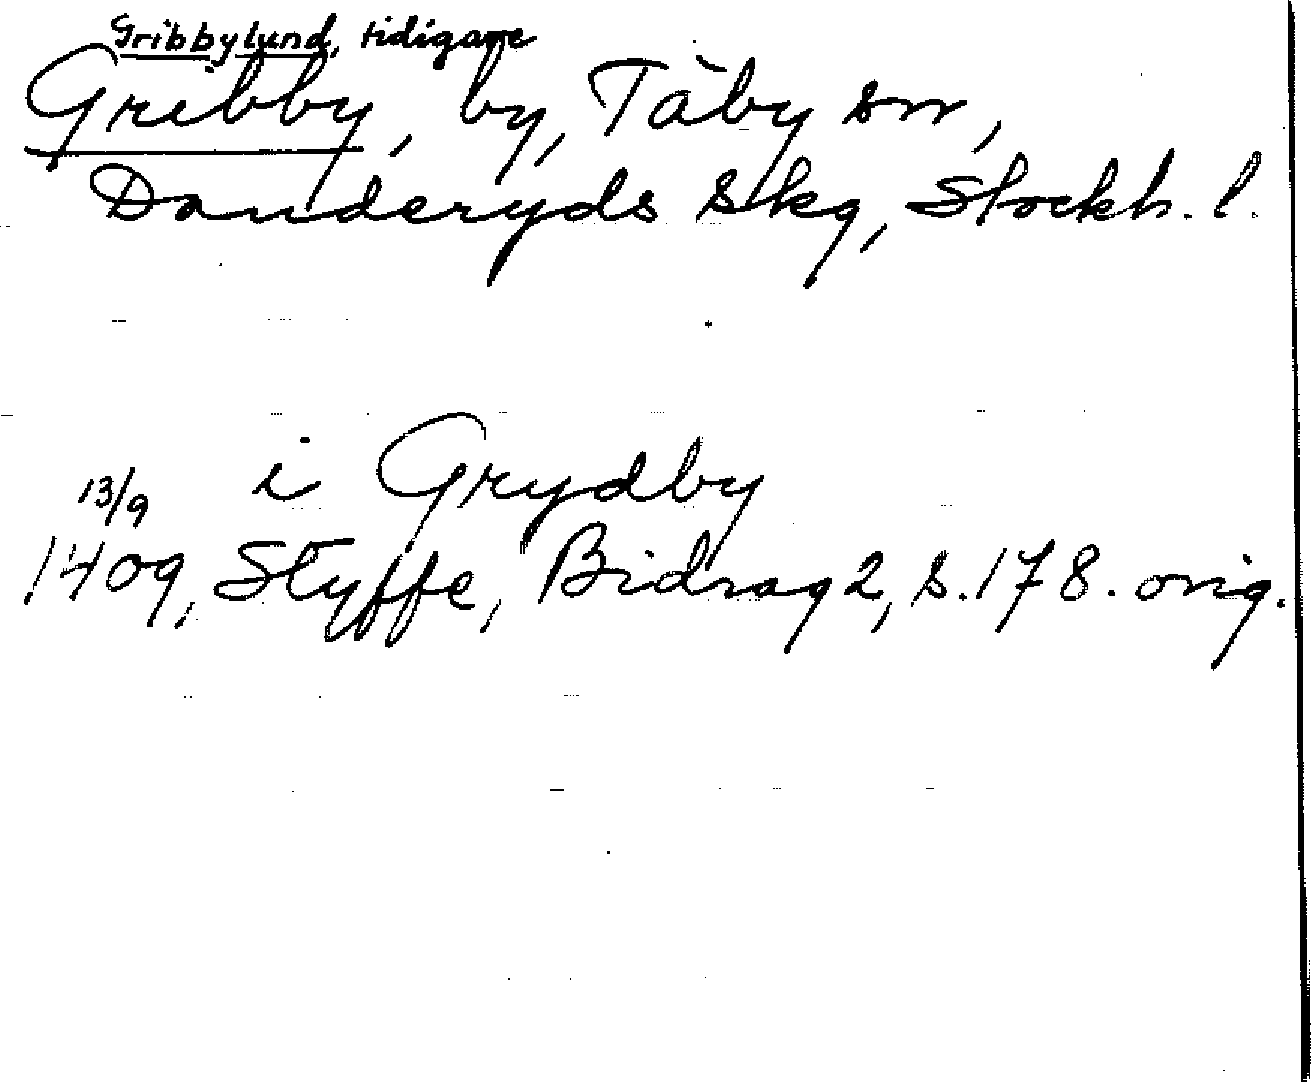 Gribbylund, tidigare
Gribby, by, Täby sn,
Danderyds skg, Stockh. l.
i Grydby
13/9
1409, Styffe, Bidrag 2, s. 178. orig.